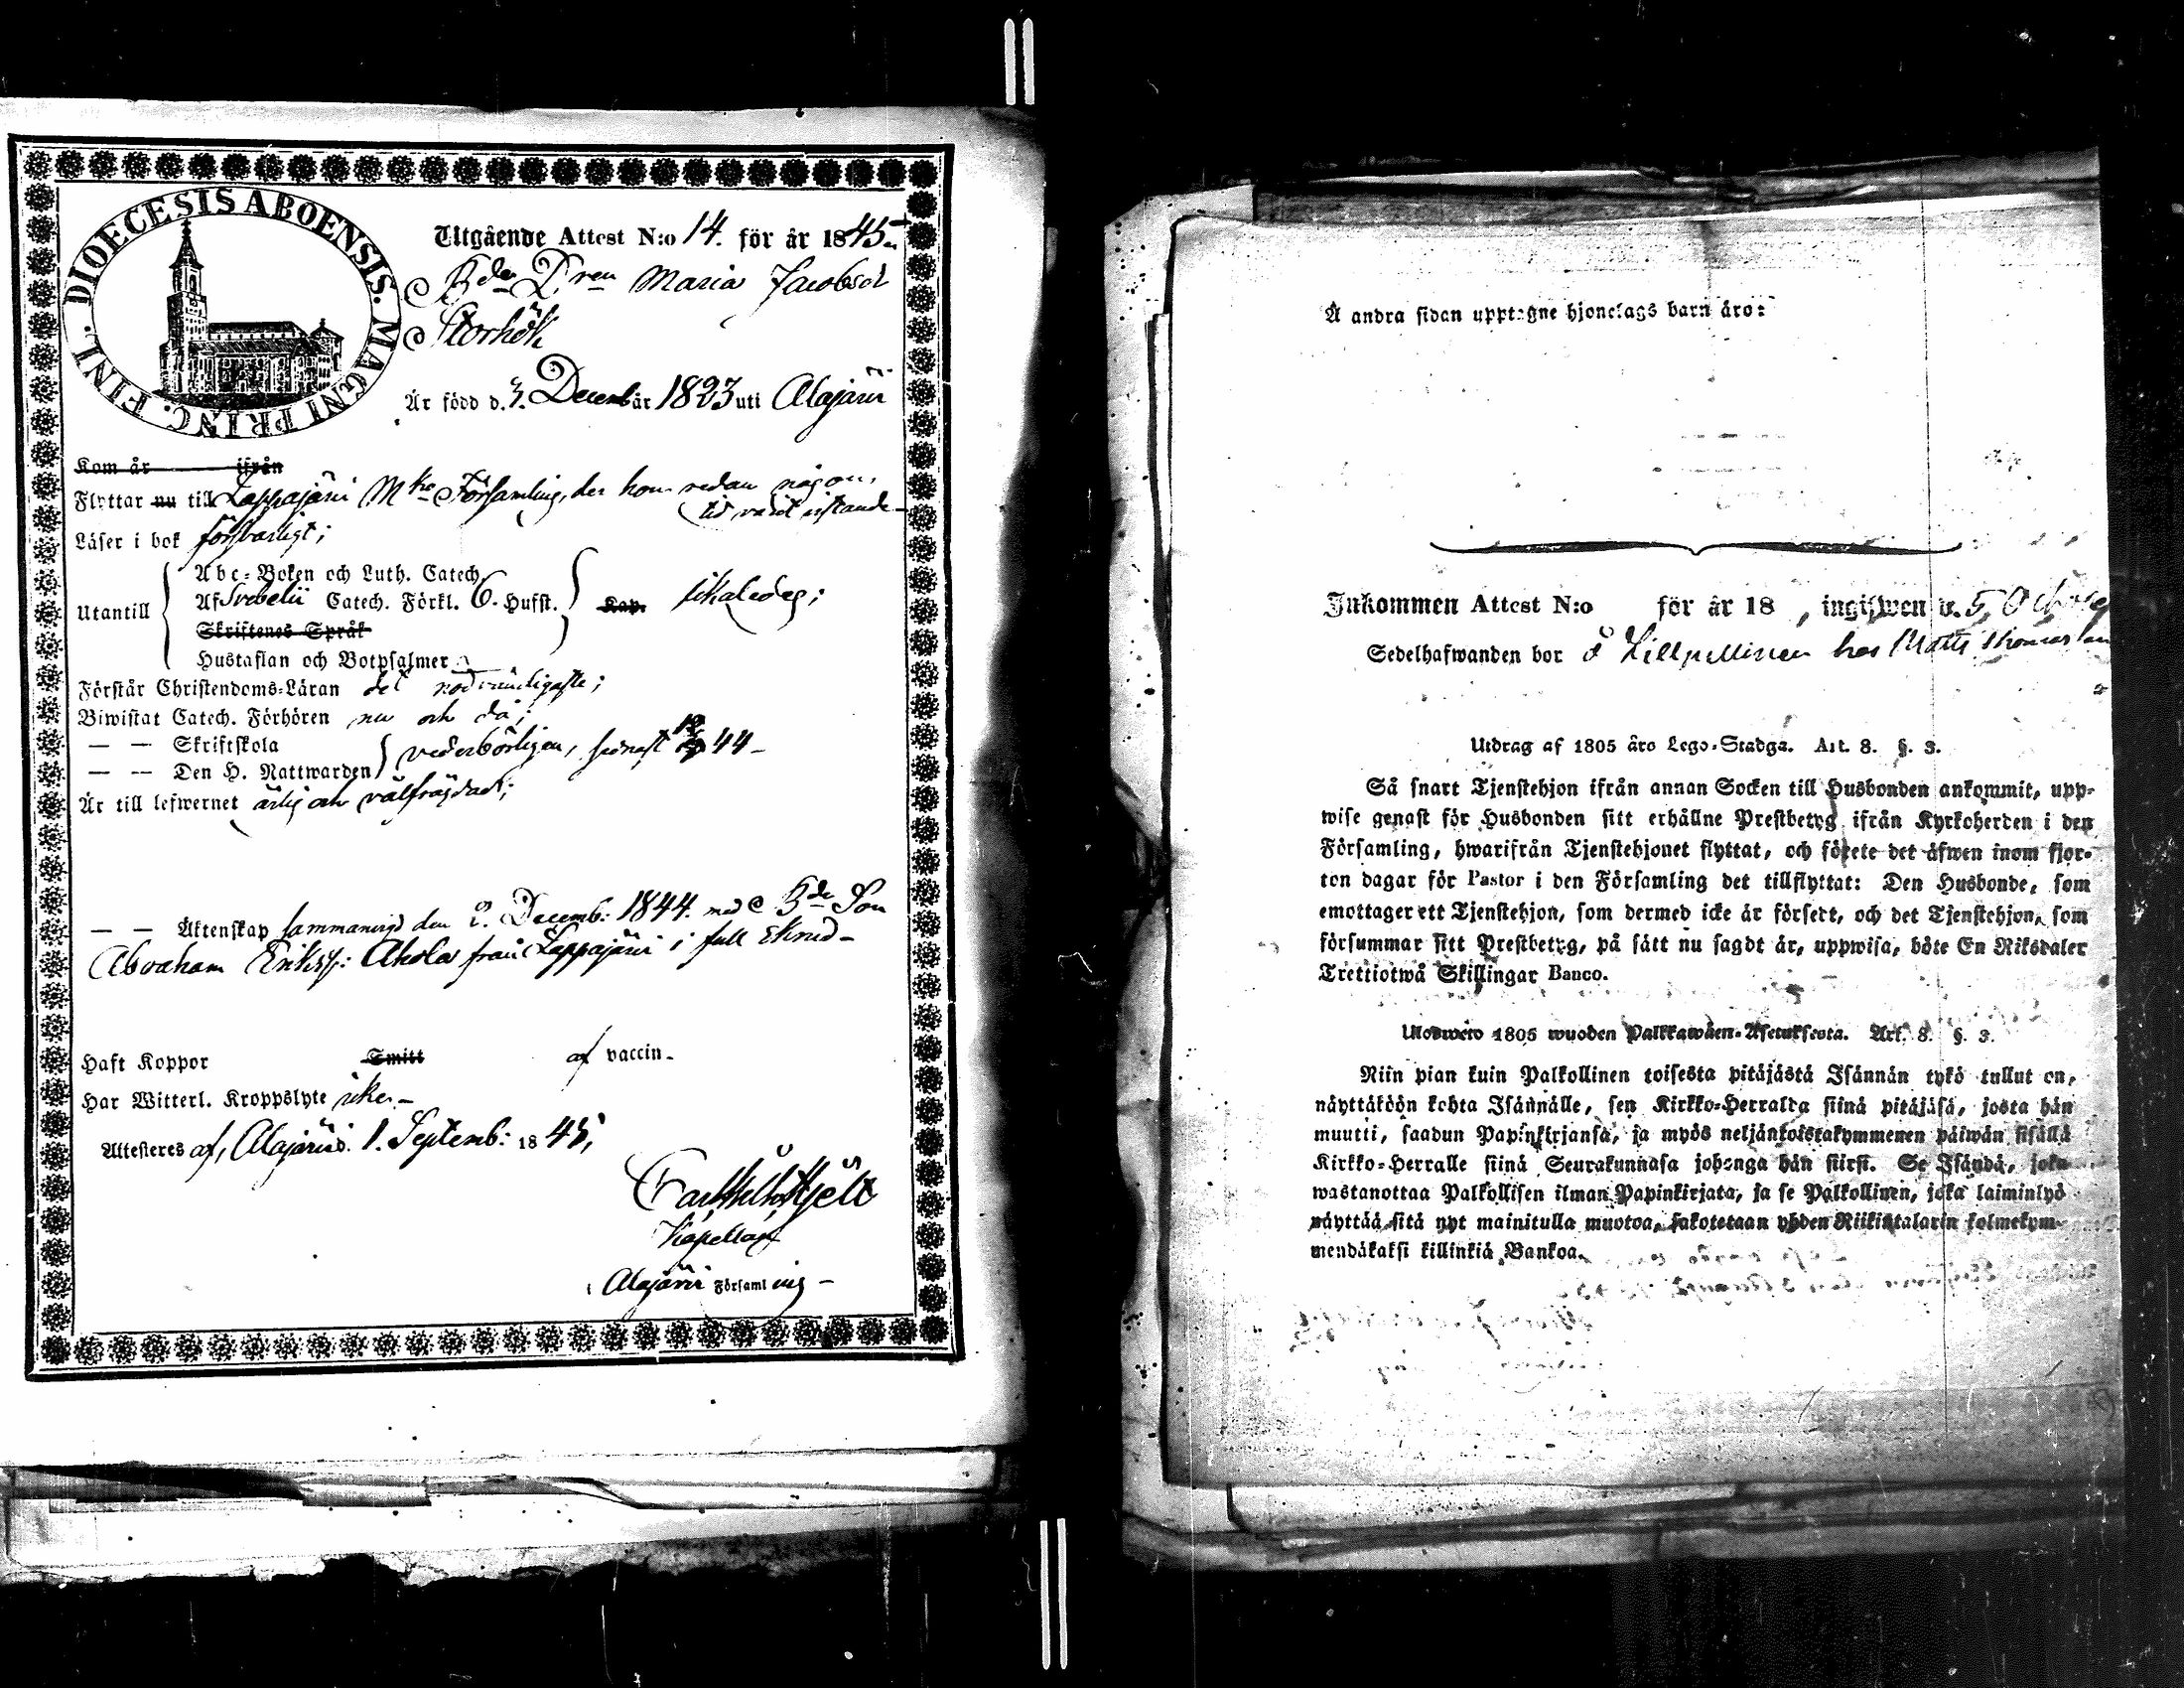 DIOECESIS ABOENSIS. MAGNI PRINC. FINL.
Utgående Attest N:o 14. för år 1845.
Bde Dren Maria Jacobsd
Storhök
Är född d. Decemb år 1823 uti Alajärvi
Kom år ifrån
Flyttar nu till Lappajärvi M församling, der hon redan någon
tid varit vistande
Läser i bok försvarligt;
Utantill
Abc-Boken och Luth. Catech.
Af Svebelii Catech. Förkl. 6. Hufst. Kap. likaledes;
Skriftenes Språk
Hustaflan och Botpsalmer
Förstår Christendoms-Läran det nödvändigaste;
Biwistat Catech. Förhören nu och då;
— — Skriftskola
— — Den H. Nattwarden vederbörligen, sednast 44
Är till lefwernet ärlig och välfrägdad;
— — Äktenskap sammanvigd den 2. Decemb: 1844. med Bde Son
Abraham Erikss: Ahola från Lappajärvi i full skrud
Haft Koppor Smitt af vaccin.
Har Witterl. Kroppslyte icke.
Attesteres af, Alajärvi d. 1. Septemb: 1845,
Carl Hjelt
Kapellan
i Alajärvi Församling
Å andra sidan upptagne hjonelags barn äro:
Inkommen Attest N:o för år 18 , ingifwen d. 5 October
Sedelhafwanden bor å Lillpellinen hos Matts Thomasson
Utdrag af 1805 års Lego-Stadga. Art. 8. §. 3.
Så snart Tjenstehjon ifrån annan Socken till Husbonden ankommit, upp-
wise genast för Husbonden sitt erhållne Prestbetyg ifrån Kyrkoherden i den
Församling, hwarifrån Tjenstehjonet flyttat, och förete det äfwen inom fjor-
ton dagar för Pastor i den Församling det tillflyttat: Den Husbonde, som
emottager ett Tjenstehjon, som dermed icke är försedt, och det Tjenstehjon, som
försummar sitt Prestbetyg, på sätt nu sagdt är, uppwisa, böte En Riksdaler
Trettiotwå Skillingar Banco.
Ulosweto 1805 wuoden Palkkawäen-Asetuksesta. Art. 8. §. 3.
Niin pian kuin Palkollinen toisesta pitäjästä Isännän tykö tullut on,
näyttäköön kohta Isännälle, sen Kirkko-Herralta siinä pitäjäsä, josta hän
muutti, saadun Papinkirjansa, ja myös neljäntoistakymmenen päiwän sisällä
Kirkko-Herralle siinä Seurakunnasa johonga hän siirsi. Se Isändä, joka
wastanottaa Palkollisen ilman Papinkirjata, ja se Palkollinen, joka laiminlyö
näyttää sitä nyt mainitulla muotoa, sakotetaan yhden Riikintalarin kolmekym-
mendäkaksi killinkiä Bankoa.